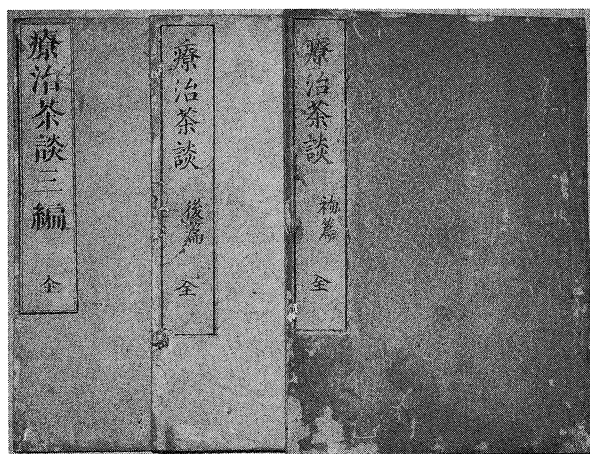 療治茶談 初篇 全
療治茶談 後篇 全
療治茶談三編 全